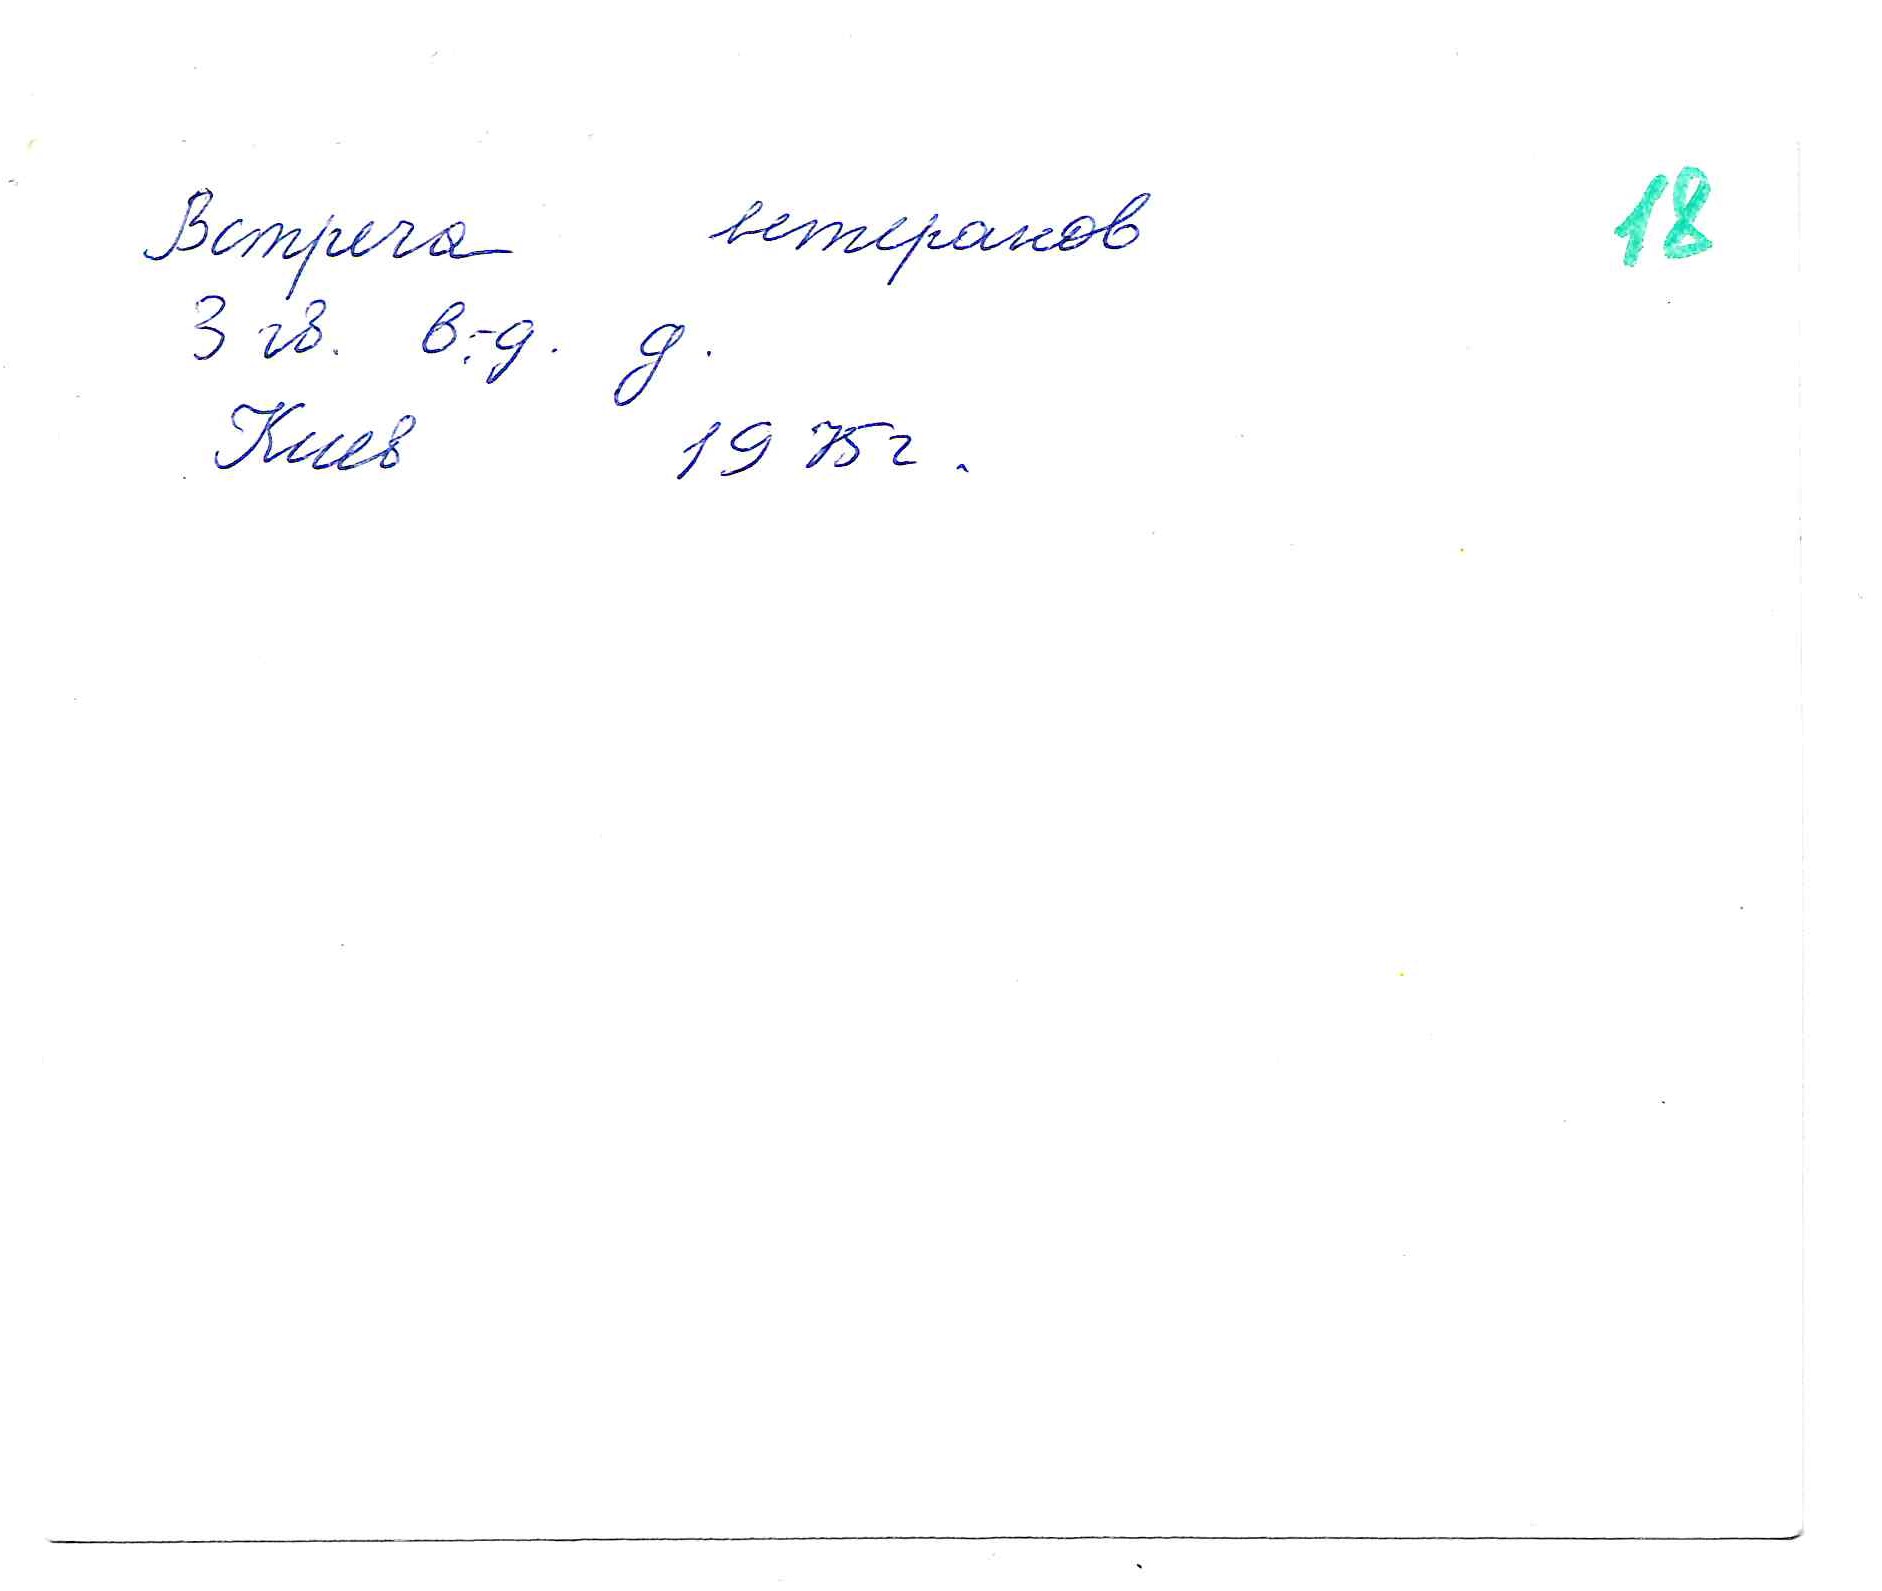 Встреча ветеранов 18
3 гв. в.-д. д.
Киев 1975г.